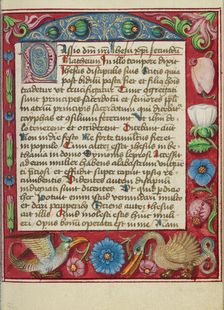 Passio dñi nr̃i Ihesu xp̃i secundum
Matheum In illo tempore dixit
Ihesus discipulis suis Scitis quia
post biduũ pasca fiet et filius homĩs
tradetur ut crucifigatur Tunc congregati
sunt principes sacerdotũ et seniores ppl̃i
in atrium principis sacerdotũ qui dicebatur
cayphas et consilium fecerunt ut Ihesum
dolo tenerent et occiderent Dicebant autẽ
Non in die festo Ne forte tumultus fieret
in populo Cum autem Ihesus esset in
bethania in domo Symonis leprosi Accessit
unguenti
et effudit super caput ipsius re
cumbentis Videntes autem discipuli in
dignati sunt dicentes Ut quid perditio
hec Potuit enim istud venundari multo
et dari pauperibus Sciens autem Ihesus
ait illis Quid molesti estis huic mulie
ri Opus bonũ operata est in me Nam